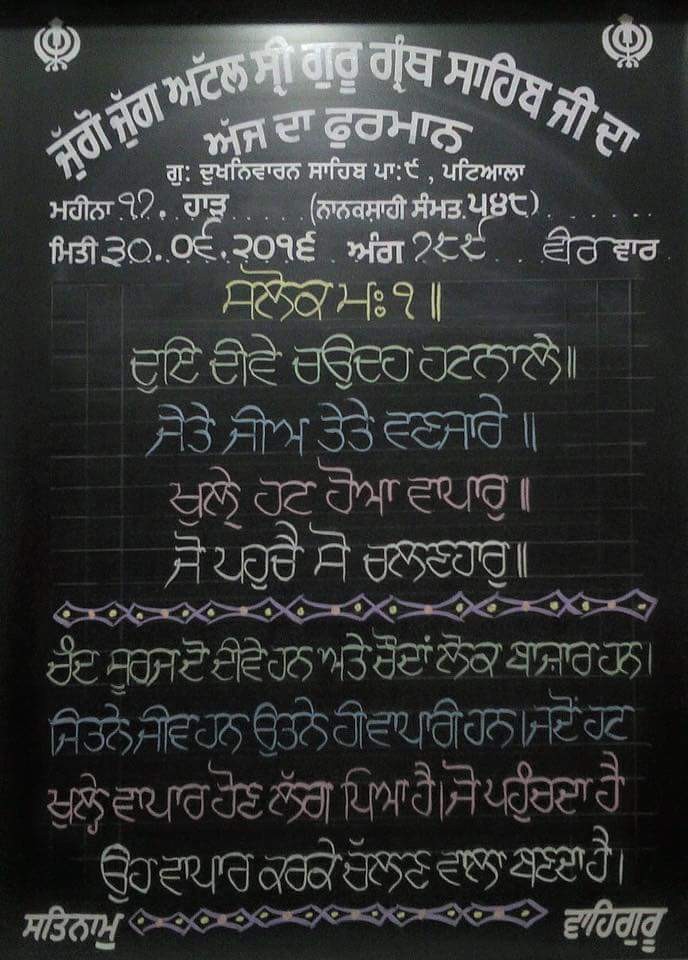 ਜੁੱਗੋ ਜੁੱਗ ਅਟੱਲ ਸ੍ਰੀ ਗੁਰੂ ਗ੍ਰੰਥ ਸਾਹਿਬ ਜੀ ਦਾ
ਅੱਜ ਦਾ ਫੁਰਮਾਨ
ਗੁ: ਦੁਖਨਿਵਾਰਨ ਸਾਹਿਬ ਪਾ:੯, ਪਟਿਆਲਾ
ਮਹੀਨਾ ੧੭ ਹਾੜ (ਨਾਨਕਸ਼ਾਹੀ ਸੰਮਤ ੫੪੮)
ਮਿਤੀ ੩੦.੦੬.੨੦੧੬ ਅੰਗ ੭੮੯ ਵੀਰ ਵਾਰ
ਸਲੋਕ ਮਃ ੧ ॥
ਦੁਇ ਦੀਵੇ ਚਉਦਹ ਹਟਨਾਲੇ॥
ਜੇਤੇ ਜੀਅ ਤੇਤੇ ਵਣਜਾਰੇ ॥
ਖੁਲ੍ਹੇ ਹਟ ਹੋਆ ਵਾਪਾਰੁ॥
ਜੋ ਪਹੁਚੈ ਸੋ ਚਲਣਹਾਰੁ॥
ਚੰਦ ਸੂਰਜ ਦੋ ਦੀਵੇ ਹਨ ਅਤੇ ਚੌਦਾਂ ਲੋਕ ਬਾਜ਼ਾਰ ਹਨ।
ਜਿਤਨੇ ਜੀਵ ਹਨ ਉਤਨੇ ਹੀ ਵਾਪਾਰੀ ਹਨ।ਜਦੋਂ ਹਟ
ਖੁਲ੍ਹੇ ਵਾਪਾਰ ਹੋਣ ਲੱਗ ਪਿਆ ਹੈ।ਜੋ ਪਹੁੰਚਦਾ ਹੈ
ਉਹ ਵਾਪਾਰ ਕਰਕੇ ਚੱਲਣ ਵਾਲਾ ਬਣਦਾ ਹੈ।
ਸਤਿਨਾਮੁ ਵਾਹਿਗੁਰੂ